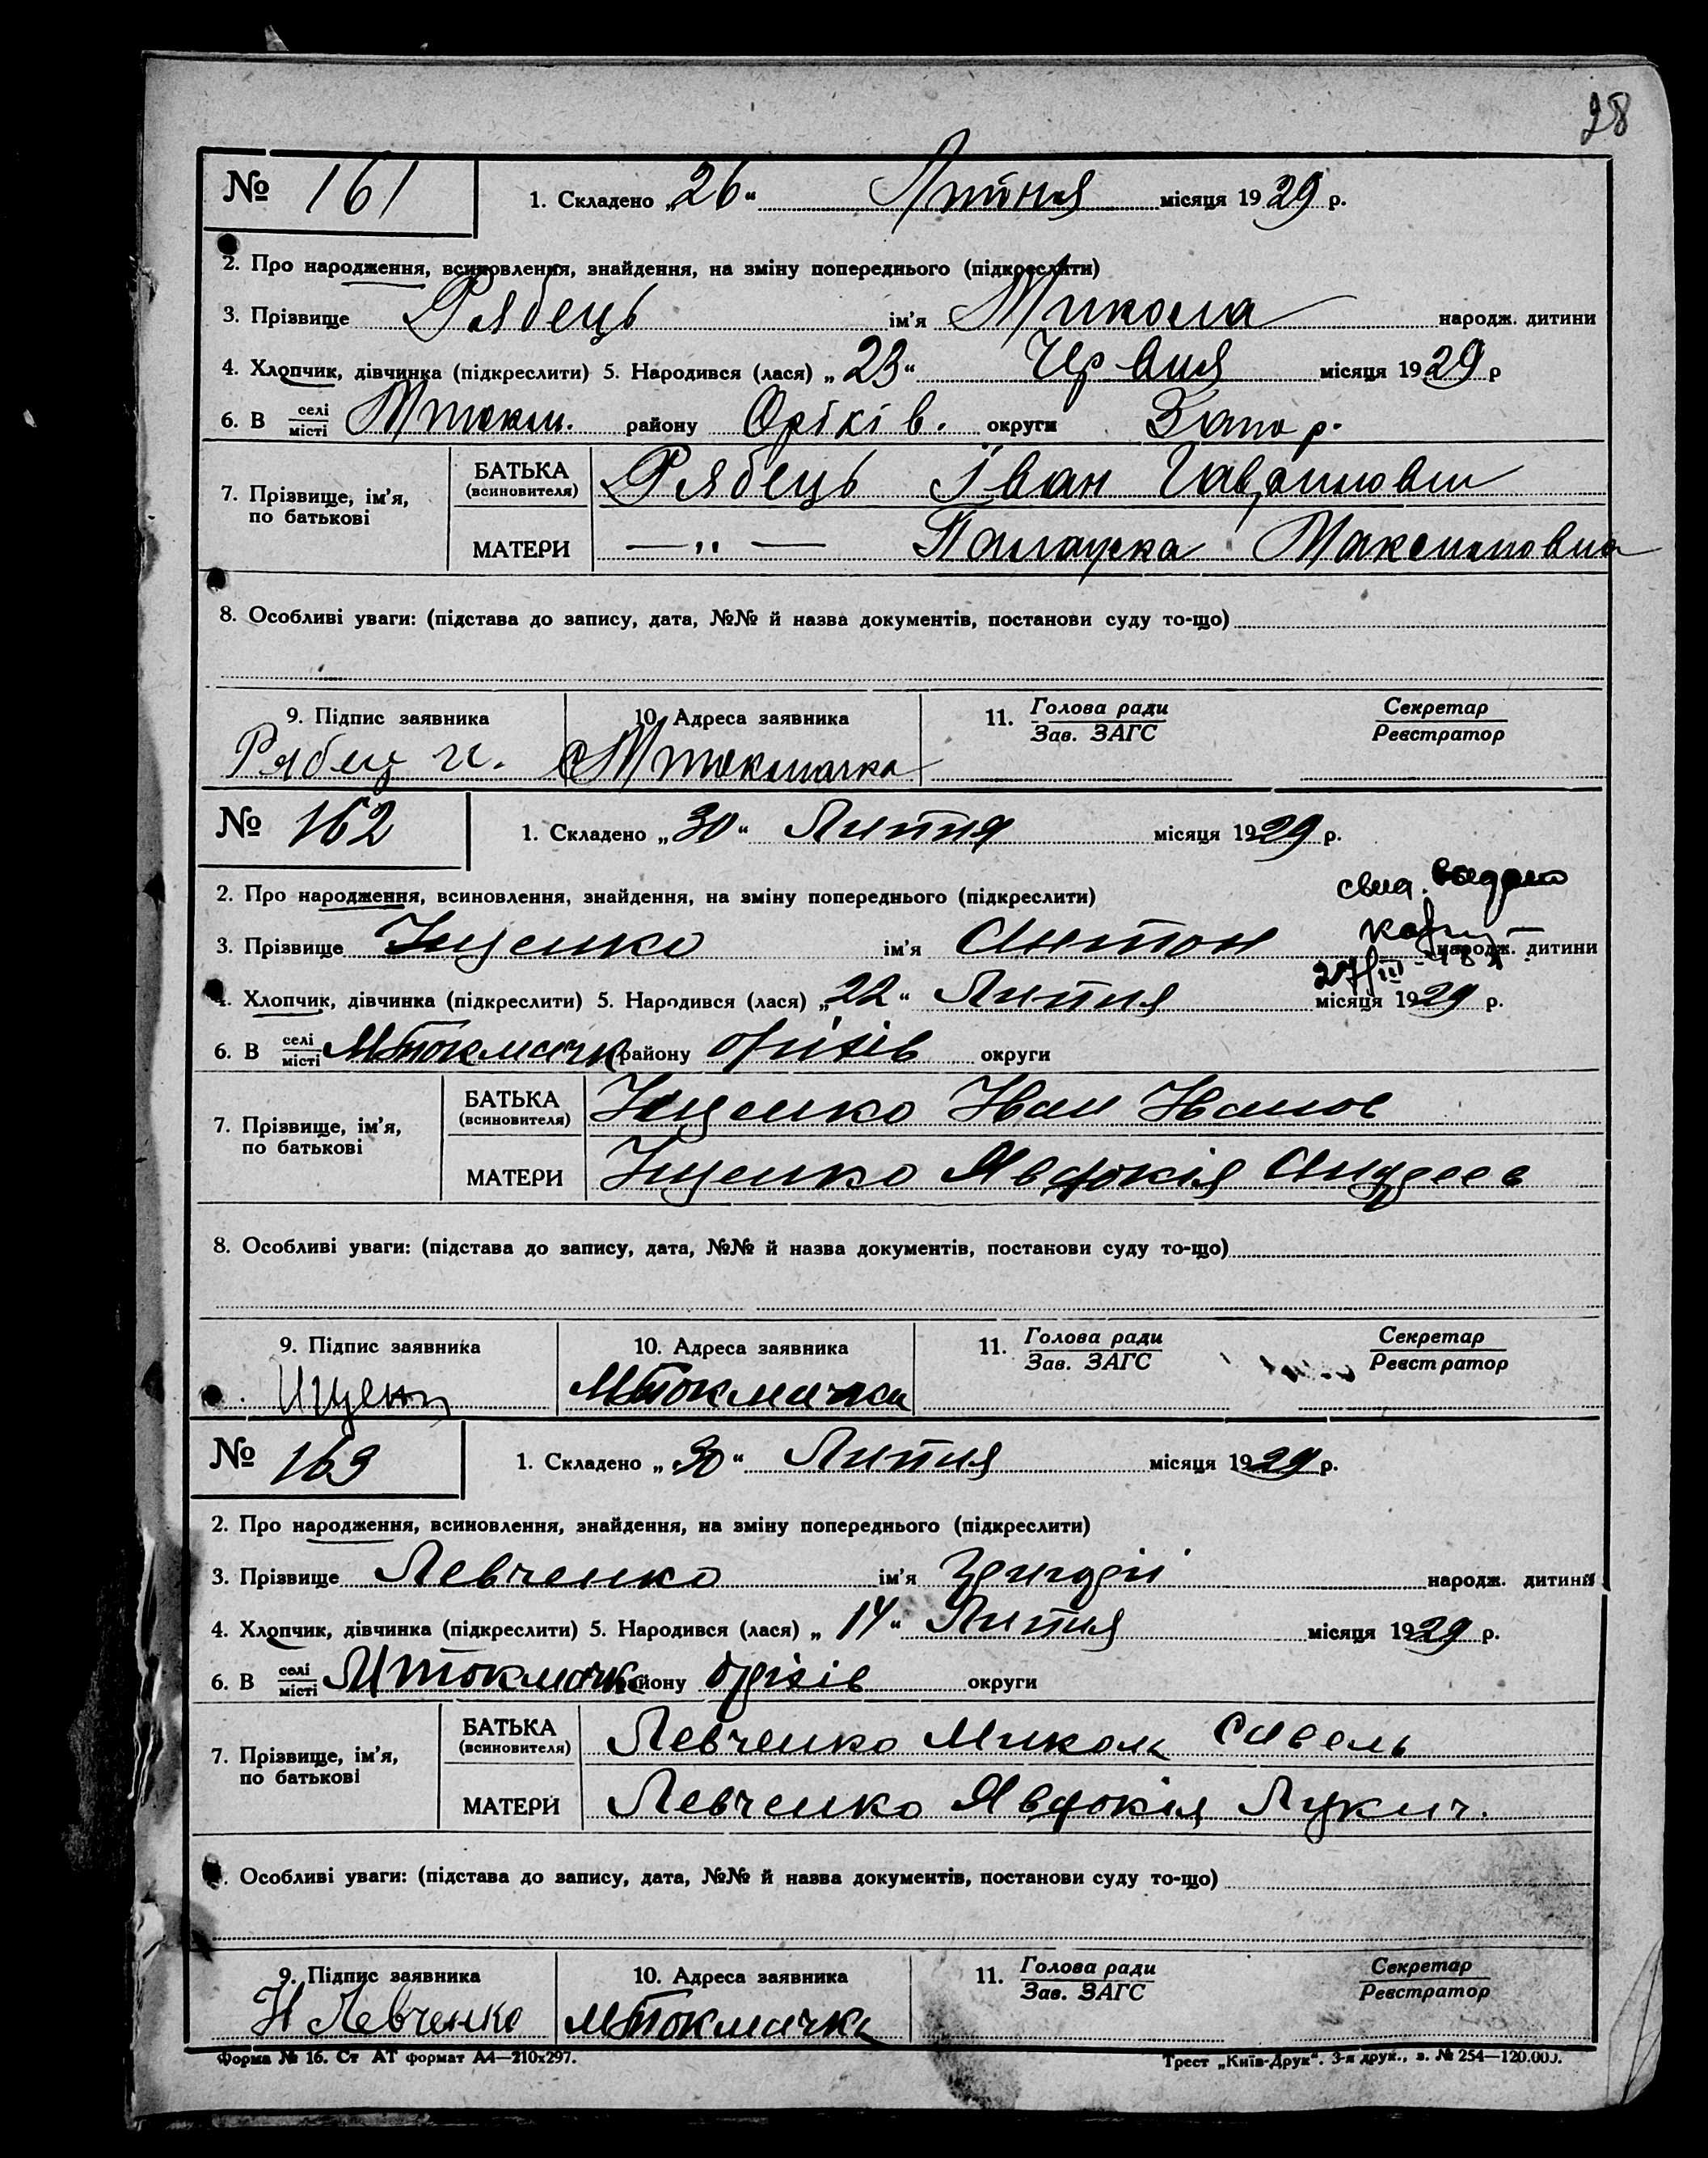 28
№ 161 1. Складено „26“ Липня місяця 1929 р.
2. Про народження, всиновлення, знайдення, на зміну попереднього (підкреслити)
3. Прізвище Рябець ім'я Микола народж. дитини
4. Хлопчик, дівчинка (підкреслити) 5. Народився (лася) „23“ Червня місяця 1929 р
6. В селі/місті Мтокм. району Оріхів. округи Запор.
7. Прізвище, ім'я, по батькові БАТЬКА (всиновителя) Рябець Іван Гаврилович
МАТЕРИ —„— Палажка Максимовна
8. Особливі уваги: (підстава до запису, дата, №№ й назва документів, постанови суду то-що)
9. Підпис заявника 10. Адреса заявника 11. Голова ради/Зав. ЗАГС Секретар/Реєстратор
Рябец И. с Мтокмачка
№ 162 1. Складено „30“ Липня місяця 1929 р.
2. Про народження, всиновлення, знайдення, на зміну попереднього (підкреслити)
3. Прізвище Іщенко ім'я Антон народж. дитини
27/III
4. Хлопчик, дівчинка (підкреслити) 5. Народився (лася) „22“ Липня місяця 1929 р.
6. В селі/місті Мтокмачк району Оріхів округи
7. Прізвище, ім'я, по батькові БАТЬКА (всиновителя) Іщенко Иван Иванов
МАТЕРИ Іщенко Явдокія Андреев
8. Особливі уваги: (підстава до запису, дата, №№ й назва документів, постанови суду то-що)
9. Підпис заявника 10. Адреса заявника 11. Голова ради/Зав. ЗАГС Секретар/Реєстратор
Ищенко Мтокмачка
№ 163 1. Складено „30“ Липня місяця 1929 р.
2. Про народження, всиновлення, знайдення, на зміну попереднього (підкреслити)
3. Прізвище Левченко ім'я Григорій народж. дитини
4. Хлопчик, дівчинка (підкреслити) 5. Народився (лася) „14“ Липня місяця 1929 р.
6. В селі/місті Мтокмачк району Оріхів округи
7. Прізвище, ім'я, по батькові БАТЬКА (всиновителя) Левченко Микола Савель
МАТЕРИ Левченко Явдокія Лукич.
8. Особливі уваги: (підстава до запису, дата, №№ й назва документів, постанови суду то-що)
9. Підпис заявника 10. Адреса заявника 11. Голова ради/Зав. ЗАГС Секретар/Реєстратор
Н Левченко Мтокмачка
Форма № 16. Ст АТ формат А4—210х297. Трест „Київ-Друк“. 3-я друк., з. № 254—120.000.